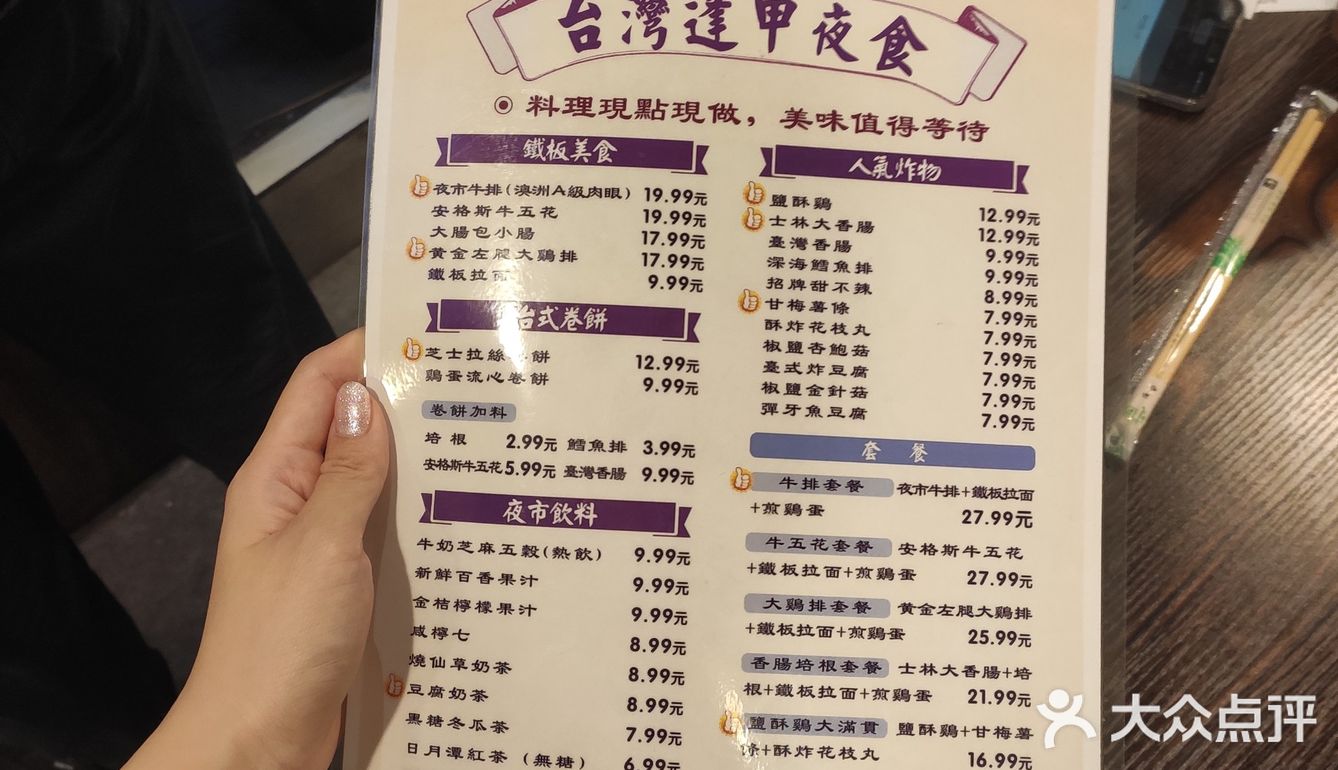 台灣逢甲夜食
料理現點現做，美味值得等待
鐵板美食
夜市牛排(澳洲A級肉眼) 19.99元
安格斯牛五花 19.99元
大腸包小腸 17.99元
黃金左腿大鷄排 17.99元
鐵板拉面 9.99元
台式卷餅
芝士拉絲 餅 12.99元
鷄蛋流心卷餅 9.99元
卷餅加料
培根 2.99元 鱈魚排 3.99元
安格斯牛五花 5.99元 臺灣香腸 9.99元
夜市飲料
牛奶芝麻五穀(熱飲) 9.99元
新鮮百香果汁 9.99元
金桔檸檬果汁 9.99元
咸檸七 8.99元
燒仙草奶茶 8.99元
豆腐奶茶 8.99元
黑糖冬瓜茶 7.99元
日月潭紅茶 (無糖) 6.99元
人氣炸物
鹽酥鷄 12.99元
士林大香腸 12.99元
臺灣香腸 9.99元
深海鱈魚排 9.99元
招牌甜不辣 8.99元
甘梅薯條 7.99元
酥炸花枝丸 7.99元
椒鹽杏鮑菇 7.99元
臺式炸豆腐 7.99元
椒鹽金針菇 7.99元
彈牙魚豆腐 7.99元
套餐
牛排套餐 夜市牛排+鐵板拉面
+煎鷄蛋 27.99元
牛五花套餐 安格斯牛五花
+鐵板拉面+煎鷄蛋 27.99元
大鷄排套餐 黃金左腿大鷄排
+鐵板拉面+煎鷄蛋 25.99元
香腸培根套餐 士林大香腸+培
根+鐵板拉面+煎鷄蛋 21.99元
鹽酥鷄大滿貫 鹽酥鷄+甘梅薯
條+酥炸花枝丸 16.99元
大众点评